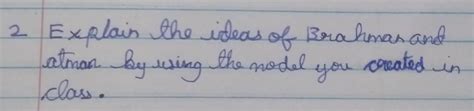 2 Explain the ideas of Brahman and
atman by using the model you created in
class.